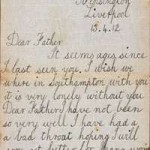 Kensington
Liverpool
13.4.12
Dear Father
It seems ages since
I last seen you, I wish we
where in Southampton with you
it is very lonely without you
Dear Father I have not been
so very well I have had a
a bad throat hoping I will